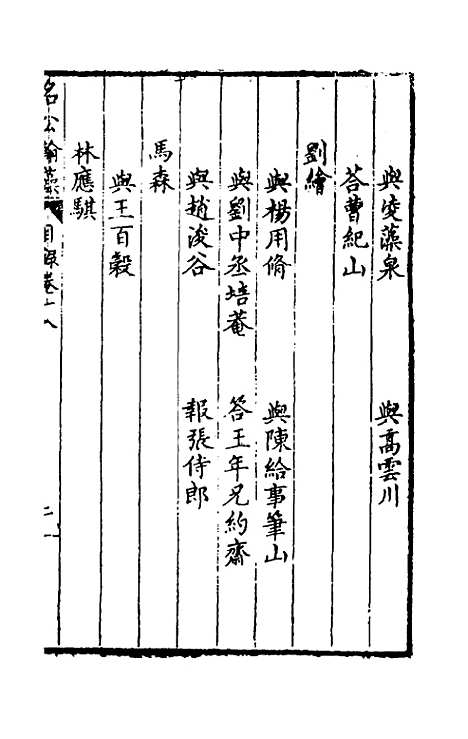 與凌藻泉　與高雲川
荅曹紀山
劉繪
與楊用脩　與陳給事筆山
與劉中丞培菴　答王年兄約齋
與趙浚谷　報張侍郎
馬森
與王百穀
林應騏
名公翰藻　目錄卷十八